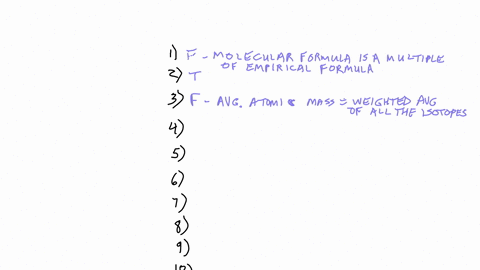 1) F - MOLECULAR FORMULA IS A MULTIPLE
OF EMPIRICAL FORMULA
2) T
3) F - AVG. ATOMIC MASS = WEIGHTED AVG
OF ALL THE ISOTOPES
4)
5)
6)
7)
8)
9)
10)